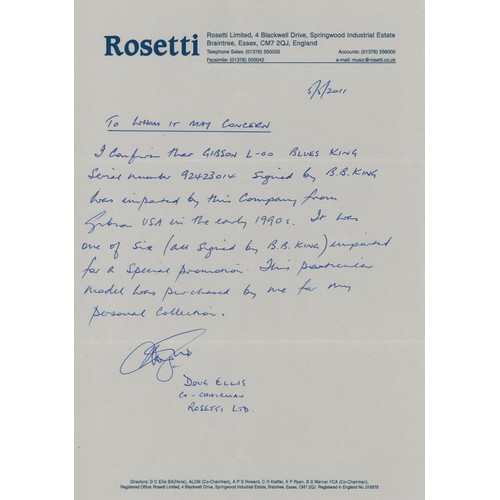 Rosetti
Rosetti Limited, 4 Blackwell Drive, Springwood Industrial Estate
Braintree, Essex, CM7 2QJ, England
Telephone Sales: (01376) 550033 Accounts: (01376) 556000
Facsimile: (01376) 550042 e-mail: music@rosetti.co.uk
5/5/2011
TO WHOM IT MAY CONCERN
I confirm that GIBSON L-00 BLUES KING
Serial number 92423014 signed by B.B. KING
was imported by this Company from
Gibson USA in the early 1990s. It was
one of six (all signed by B.B. KING) imported
for a special promotion. This particular
model was purchased by me for my
personal collection.
DOUG ELLIS
CO-CHAIRMAN
ROSETTI LTD.
Directors: D C Ellis BA(Hons), ALCM (Co-Chairman), A P S Howard, C R Kieffer, K P Ryan, B S Warner FCA (Co-Chairman).
Registered Office: Rosetti Limited, 4 Blackwell Drive, Springwood Industrial Estate, Braintree, Essex, CM7 2QJ. Registered in England No.